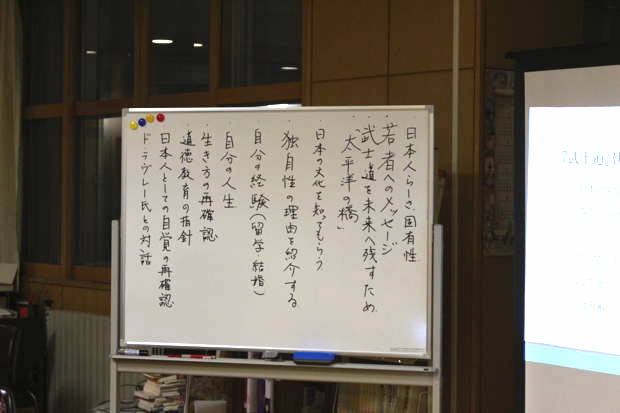 ・日本人らしさ、固有性
・若者へのメッセージ
・武士道を未来へ残すため
・「太平洋の橋」
・日本の文化を知ってもらう
・独自性の理由を紹介する
・自分の経験（留学・結婚）
・自分の人生
・生き方の再確認
・道徳教育の指針
・日本人としての自覚の再確認
・ドラヴレー氏との対話
『武士道』